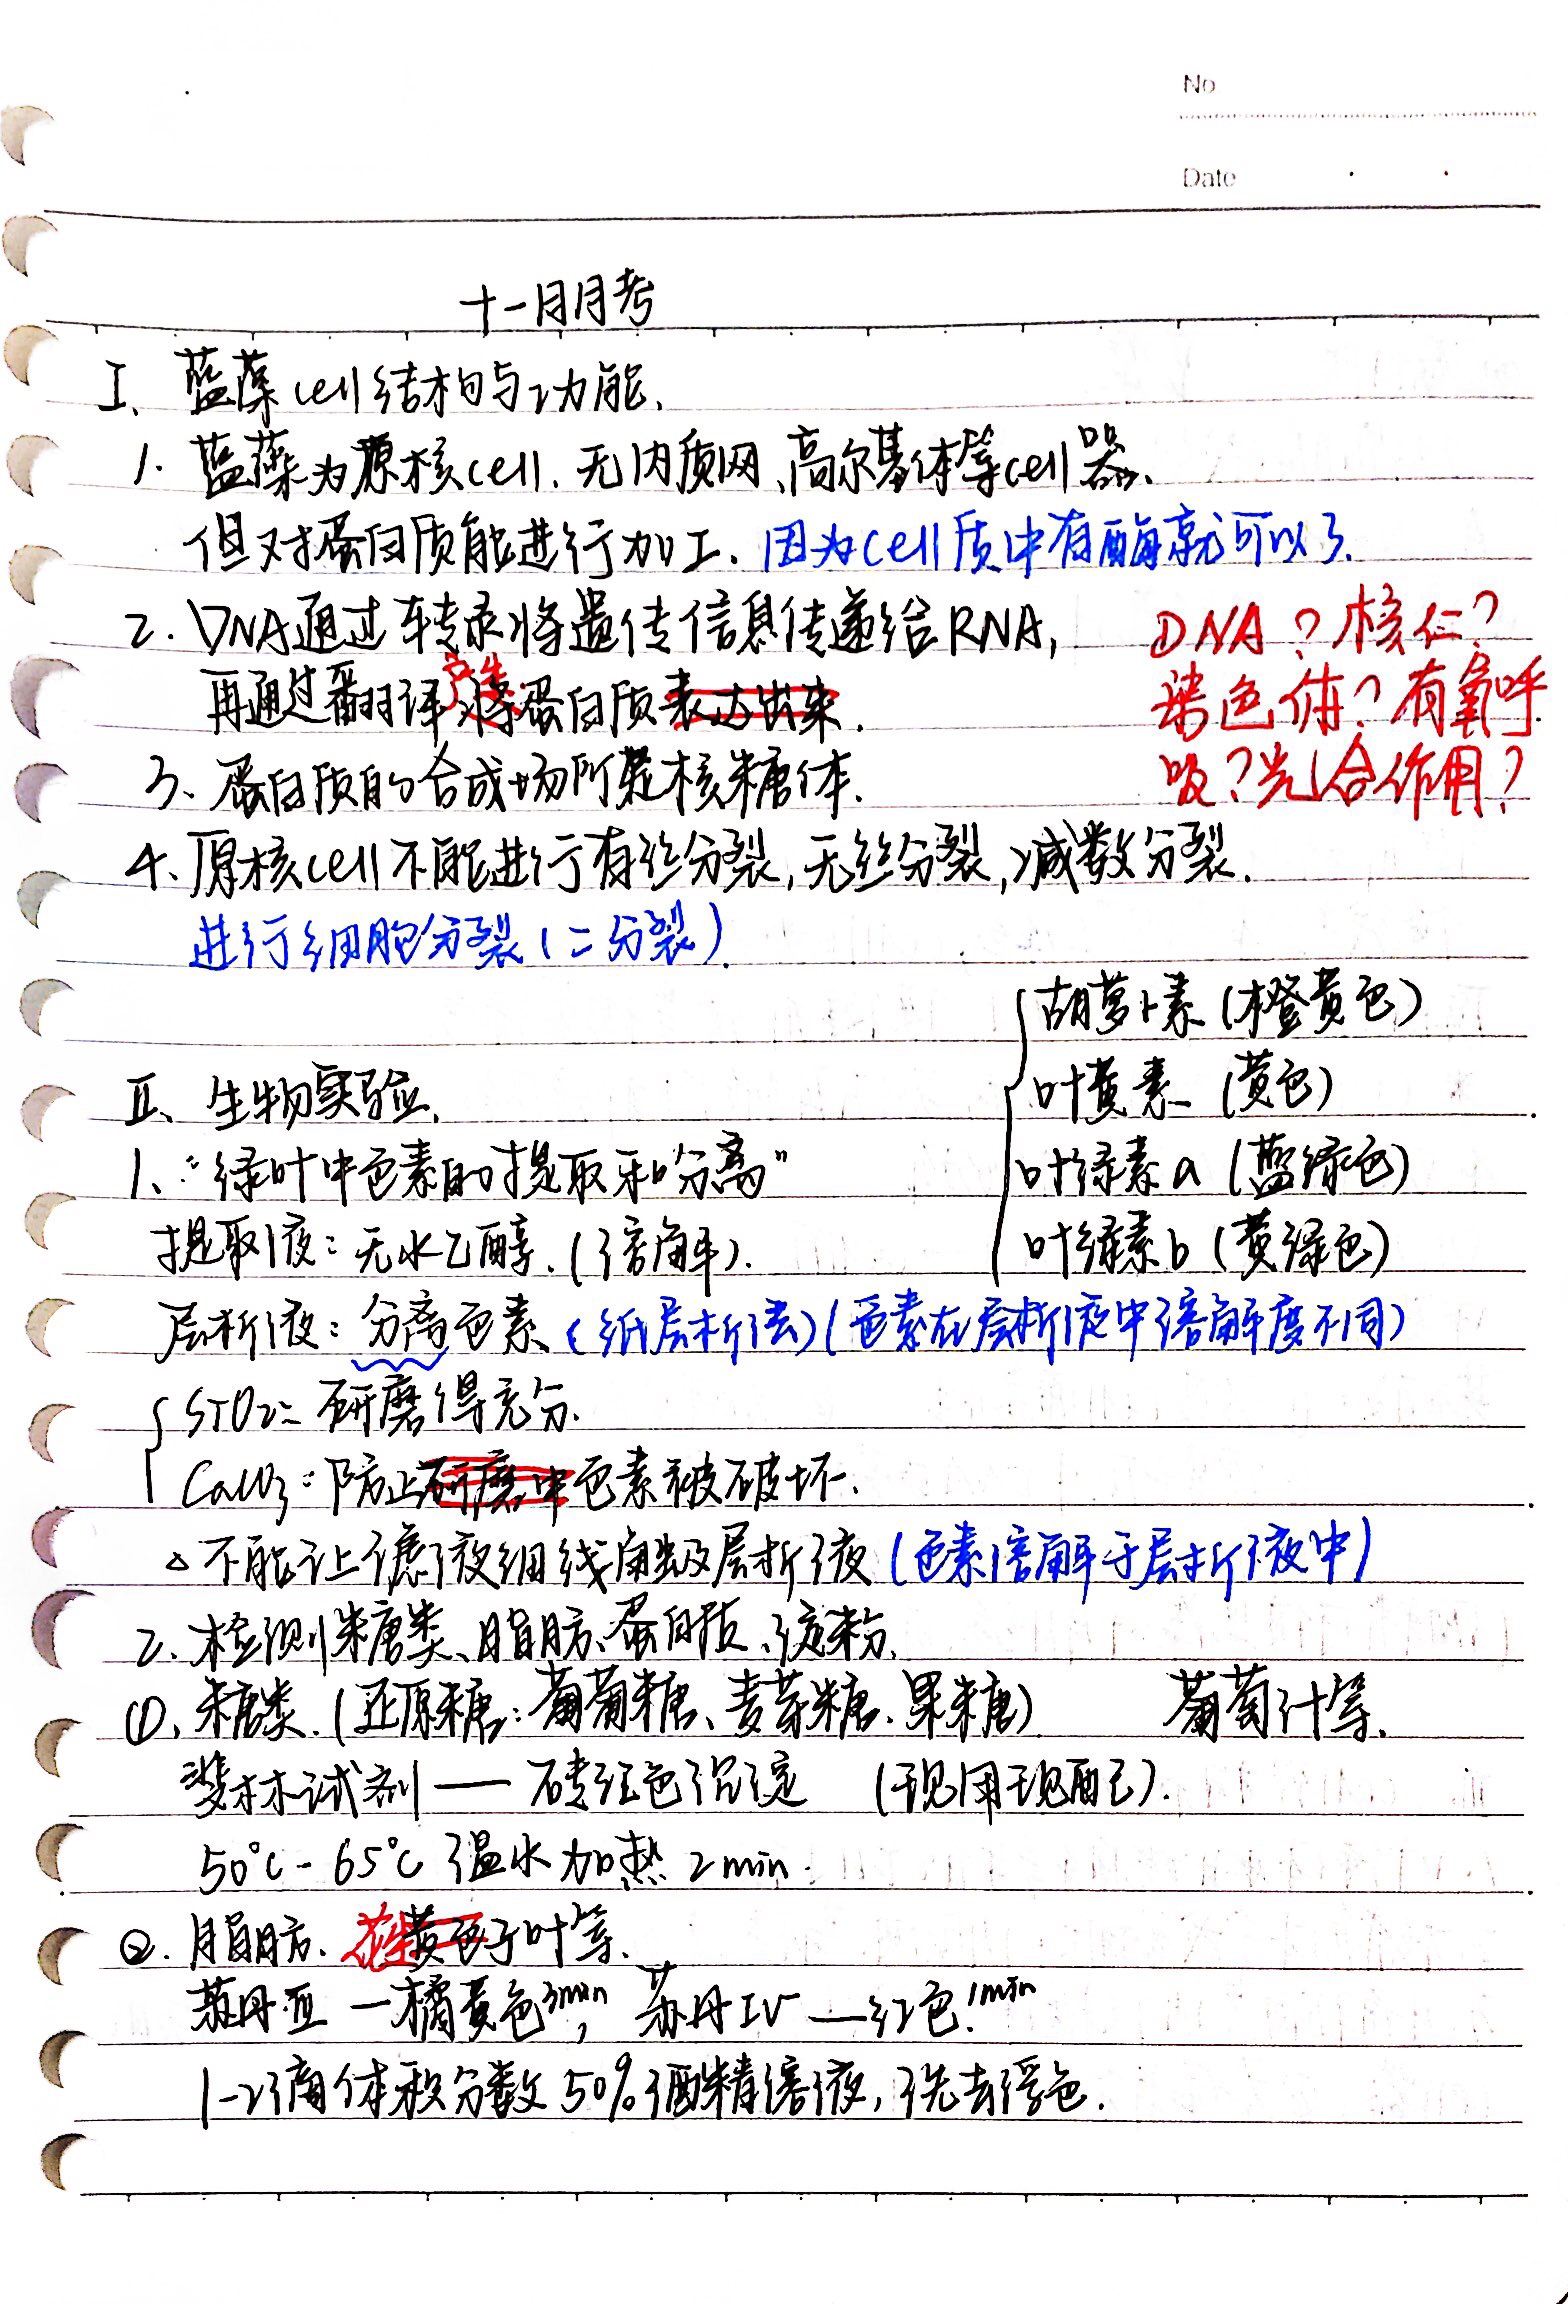 No
Date
十一月月考
I、蓝藻cell结构与功能.
1. 蓝藻为原核cell. 无内质网、高尔基体等cell器.
但对蛋白质能进行加工. 因为cell质中有酶就可以了.
2. DNA通过转录将遗传信息传递给RNA,
再通过翻译产生蛋白质表达出来.
DNA?核仁?
染色体?有氧呼
吸?光合作用?
3、蛋白质的合成场所是核糖体.
4、原核cell不能进行有丝分裂,无丝分裂,减数分裂.
进行细胞分裂(二分裂).
II、生物实验.
1、"绿叶中色素的提取和分离"
提取液:无水乙醇.(溶解).
胡萝卜素(橙黄色)
叶黄素(黄色)
叶绿素a(蓝绿色)
叶绿素b(黄绿色)
层析液:分离色素(纸层析法)(色素在层析液中溶解度不同)
SiO2:研磨得充分.
CaCO3:防止研磨中色素被破坏.
△不能让滤液细线触及层析液(色素溶解于层析液中)
2. 检测糖类、脂肪、蛋白质、淀粉.
①、糖类.(还原糖:葡萄糖、麦芽糖.果糖) 葡萄汁等.
斐林试剂——砖红色沉淀 (现用现配).
50℃-65℃温水加热2min.
②. 脂肪. 花生黄色子叶等.
苏丹III—橘黄色3min, 苏丹IV—红色.1min
1-2滴体积分数50%酒精溶液,洗去浮色.